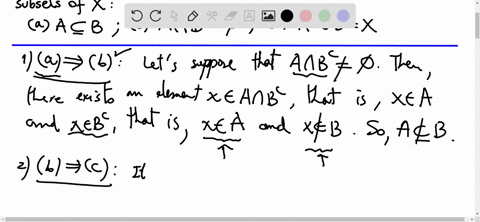 subsets of X:
(a) A ⊆ B ; = X
1) (a) ⇒ (b): Let's suppose that A∩Bᶜ ≠ ∅. Then,
there exists an element x∈A∩Bᶜ, that is, x∈A
and x∈Bᶜ, that is, x∈A and x∉B. So, A⊈B.
2) (b) ⇒ (c): If